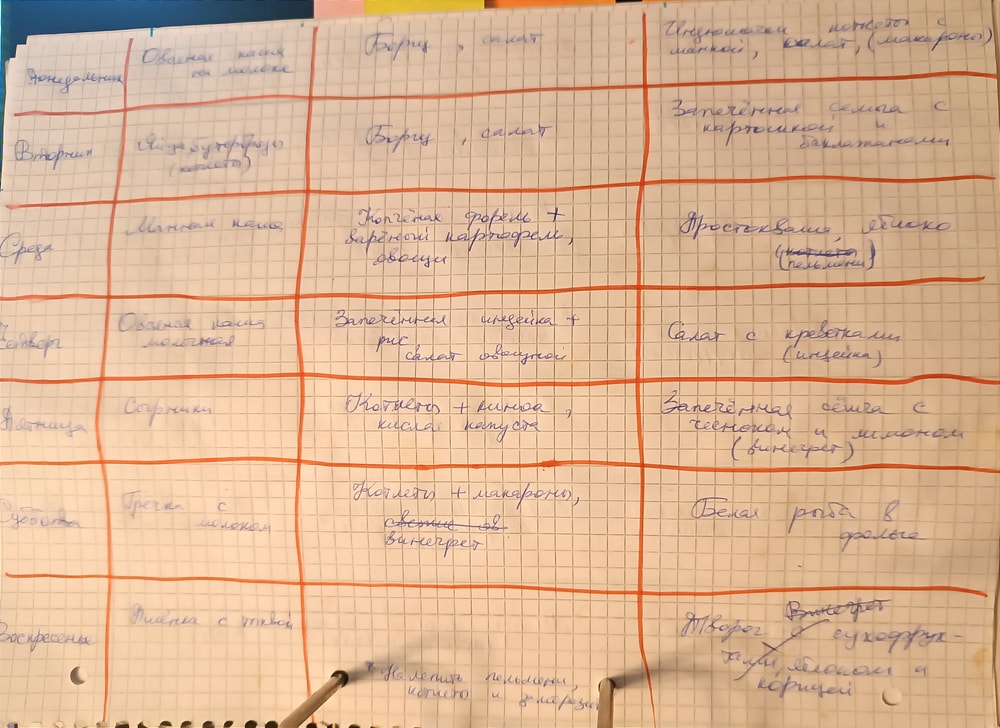 Понедельник
Овсяная каша
на молоке
Борщ, салат
котлеты с
манкой, салат, (макароны)
Вторник
Яйца, бутерброды
(котлеты)
Борщ, салат
Запечённая семга с
картошкой и
баклажанами
Среда
Манная каша
Копчёная форель +
варёный картофель,
овощи
Простокваша, яблоко
(котлеты
пельмени)
Четверг
Овсяная каша
молочная
Запеченная индейка +
рис,
салат овощной
Салат с креветками
(индейка)
Пятница
Сырники
Котлеты + киноа,
кислая капуста
Запечённая сёмга с
чесноком и лимоном
(винегрет)
Суббота
Гречка с
молоком
Котлеты + макароны,
свежие ов
винегрет
Белая рыба в
фольге
Воскресенье
Пшёнка с тыквой
Налепить пельмени,
котлеты и
Винегрет
Творог с сухофрук-
тами, яблоком и
корицей